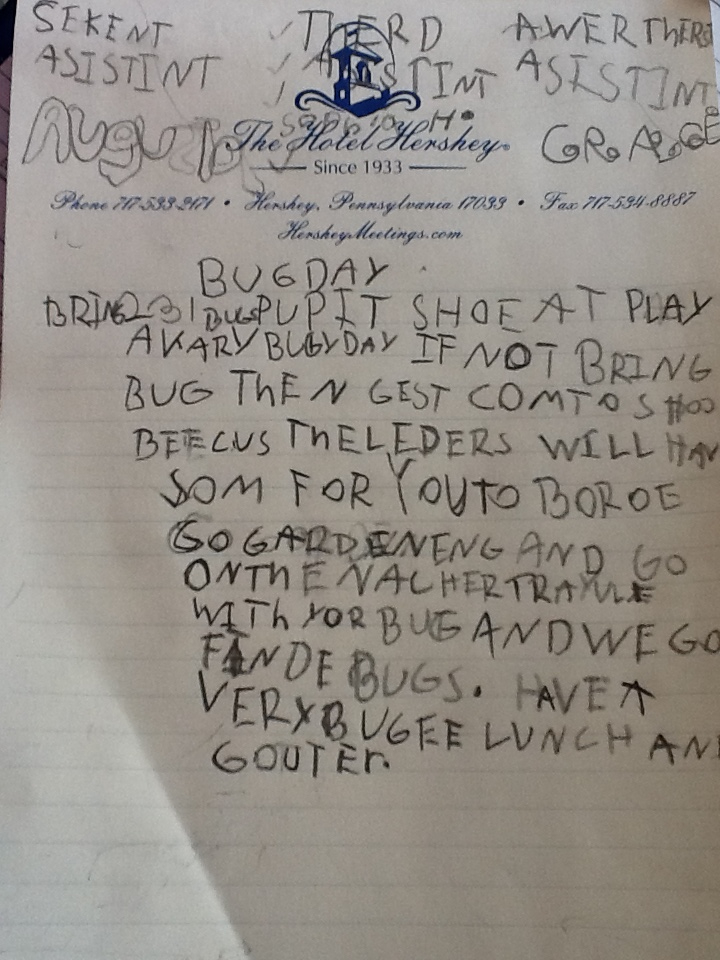 SEKENT THERD AWER THERD
ASISTINT ASISTINT ASISTINT
The Hotel Hershey
GRACE
Since 1933
Phone 717-533-2171 • Hershey, Pennsylvania 17033 • Fax 717-534-8887
HersheyMeetings.com
BUGDAY
BRING 231 BUGS PUPIT SHOE AT PLAY
AVARY BUGYDAY IF NOT BRING
BUG THEN GEST COMTO SHOO
BEECUS THE LEDERS WILL HAV
SOM FOR YOUTO BOROE
GO GARDENENG AND GO
ONTHE NACHER TRAYLE
WITH YOR BUG AND WE GO
FINDE BUGS. HAVE A
VERY BUGEE LUNCH AND
GOUTER.